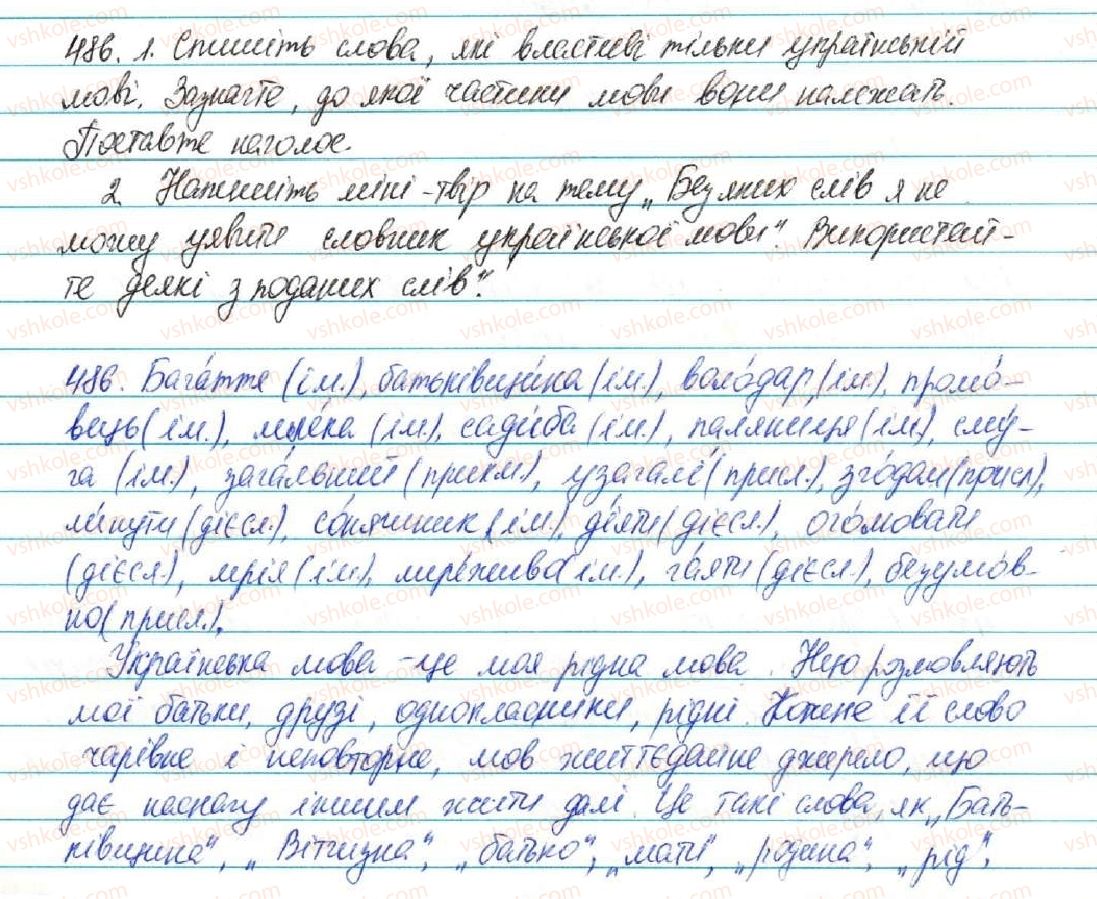 486. 1. Спишіть слова, які властиві тільки українській
мові. Зазначте, до якої частини мови вони належать.
Поставте наголос.
2 Напишіть міні-твір на тему „Без яких слів я не
можу уявити словник української мови". Використай-
те деякі з поданих слів".
486. Бага́ття (ім.), батьківщи́на (ім.), воло́дар (ім.), промо́-
вець (ім.), мре́ка (ім.), сади́ба (ім.), паляни́ця (ім.), сму́-
га (ім.), зага́льний (прикм.), узагалі́ (присл.), зго́дом (присл.),
ли́нути (дієсл.), со́няшник (ім.), ді́яти (дієсл.),
(дієсл.), мрі́я (ім.), мере́живо (ім.), га́яти (дієсл.), безумо́в-
но (присл.).
Українська мова - це моя рідна мова. Нею розмовляють
мої батьки, друзі, однокласники, рідні. Кожне її слово
чарівне і неповторне, мов життєдайне джерело, що
дає наснагу іншим жити далі. Це такі слова, як „Бать-
ківщина", „Вітчизна", „батько", „мати", „родина", „рід",
vshkole.com